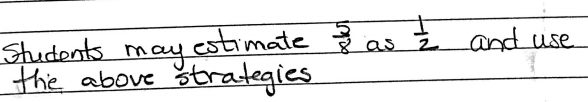 Students may estimate 5/8 as 1/2 and use
the above strategies